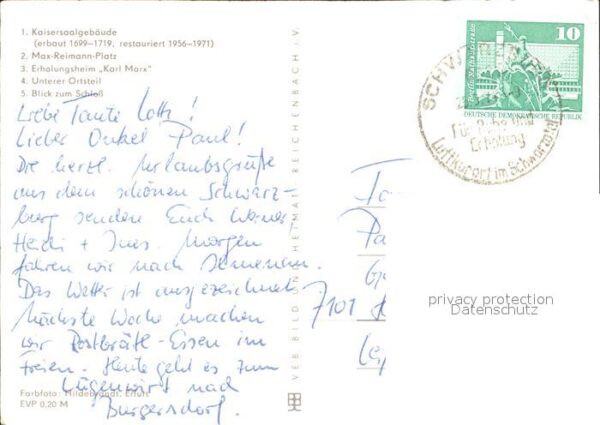 1. Kaisersaalgebäude
(erbaut 1699–1719, restauriert 1956–1971)
2. Max-Reimann-Platz
3. Erholungsheim „Karl Marx"
4. Unterer Ortsteil
5. Blick zum Schloß
Liebe Tante Lotti!
Lieber Onkel Paul!
Die herzl. Urlaubsgrüße
aus dem schönen Schwarz-
burg senden Euch Werner,
Heidi + Ines. Morgen
fahren wir nach Ilmenau.
Das Wetter ist ausgezeichnet
Nächste Woche machen
wir Rostbrätl-Essen im
Freien. Heute geht es zum
Lügenwirt nach
Burgersdorf.
Farbfoto: Hildebrandt, Erfurt
EVP 0,20 M
VEB BILD UND HEIMAT REICHENBACH i. V.
10
DEUTSCHE DEMOKRATISCHE REPUBLIK
SCHWARZBURG
Für Ruhe und
Erholung
Luftkurort im Schwarzatal
7101
privacy protection
Datenschutz